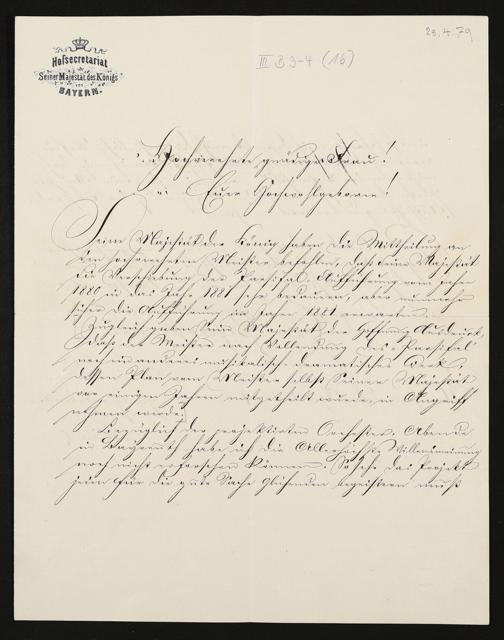 28.4.79
III B 3-4 (16)
Hofsecretariat
Seiner Majestät des Königs
von
BAYERN.
Hochverehrte, gnädige Frau!
Euer Hochwohlgeboren!
Seine Majestät der König haben die Mittheilung an
den hochverehrten Meister befohlen, daß Seine Majestät
die Verschiebung der Parsifal Aufführung vom Jahre
1880 in das Jahr 1881 sehr bedauern, aber nunmehr
sicher die Aufführung im Jahre 1881 erwarten.
Zugleich gaben Seine Majestät der Hoffnung Ausdruck,
daß der Meister nach Vollendung des "Parsifal"
noch ein anderes musikalisch-dramatisches Werk,
dessen Plan vom Meister selbst Seiner Majestät
vor einigen Jahren mitgetheilt wurde, in Angriff
nehmen werde.
Bezüglich der projektirten Orchester-Abende
in Bayreuth habe ich die Allerhöchste Willensmeinung
noch nicht erforschen können. So sehr das Projekt
jeden für die gute Sache Glühenden begeistern muß